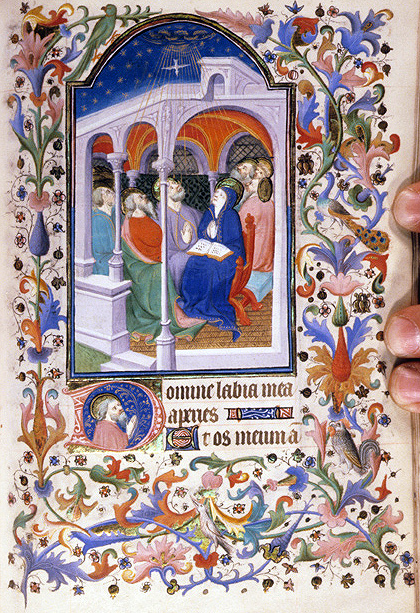 Domine labia mea
apries
Et os meum a